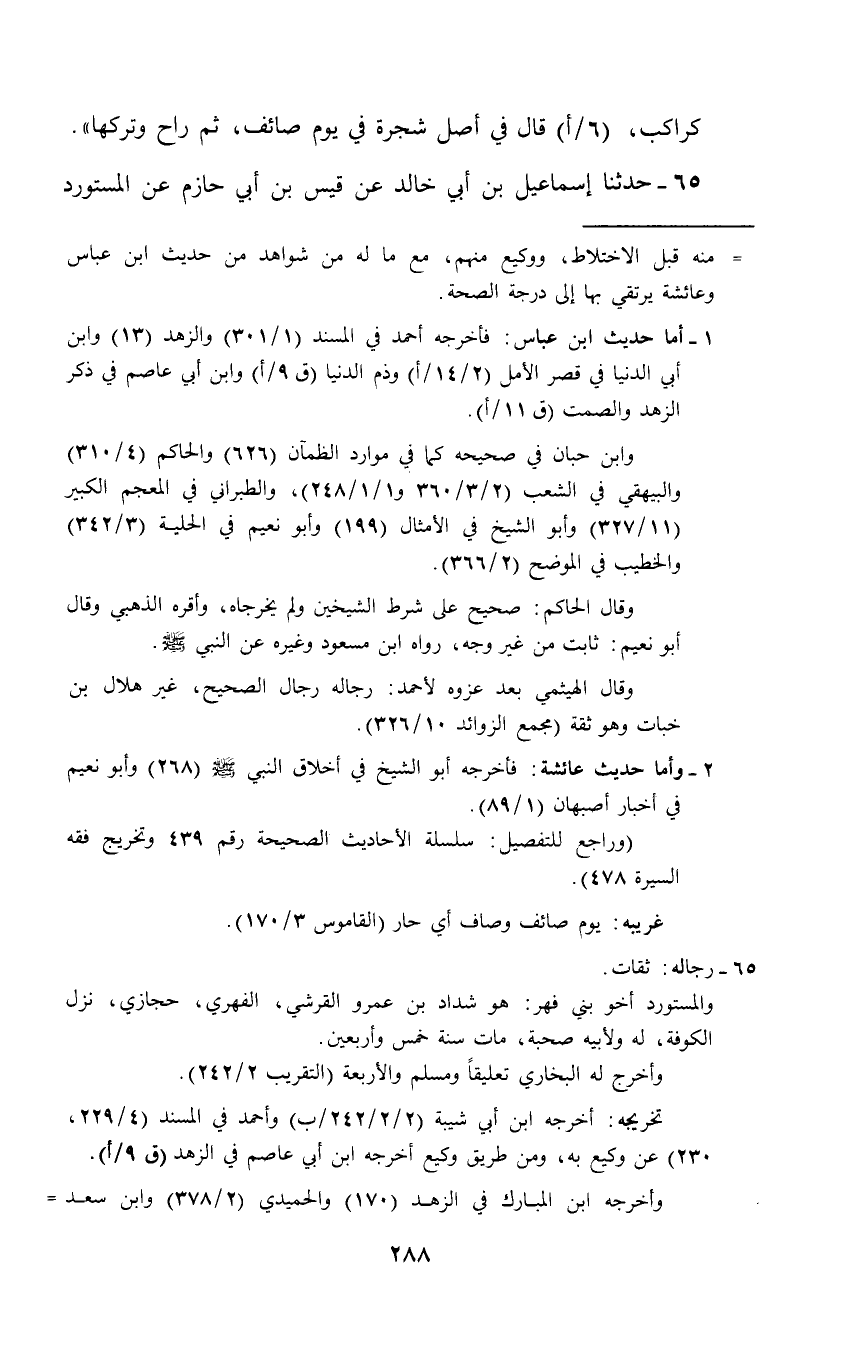 كراكب، (٦/أ) قال في أصل شجرة في يوم صائف، ثم راح وتركها».
٦٥ ـ حدثنا إسماعيل بن أبي خالد عن قيس بن أبي حازم عن المستورد
= منه قبل الاختلاط، ووكيع منهم، مع ما له من شواهد من حديث ابن عباس
وعائشة يرتقي بها إلى درجة الصحة.
١ ـ أما حديث ابن عباس: فأخرجه أحمد في المسند (٣٠١/١) والزهد (١٣) وابن
أبي الدنيا في قصر الأمل (١٤/٢/أ) وذم الدنيا (ق ٩/أ) وابن أبي عاصم في ذكر
الزهد والصمت (ق ١١/أ).
وابن حبان في صحيحه كما في موارد الظمآن (٦٢٦) والحاكم (٣١٠/٤)
والبيهقي في الشعب (٣٦٠/٣/٢ و٢٤٨/١/١)، والطبراني في المعجم الكبير
(٣٢٧/١١) وأبو الشيخ في الأمثال (١٩٩) وأبو نعيم في الحلية (٣٤٢/٣)
والخطيب في الموضح (٣٦٦/٢).
وقال الحاكم: صحيح على شرط الشيخين ولم يخرجاه، وأقره الذهبي وقال
أبو نعيم: ثابت من غير وجه، رواه ابن مسعود وغيره عن النبي ﷺ.
وقال الهيثمي بعد عزوه لأحمد: رجاله رجال الصحيح، غير هلال بن
خبات وهو ثقة (مجمع الزوائد ٣٢٦/١٠).
٢ ـ وأما حديث عائشة: فأخرجه أبو الشيخ في أخلاق النبي ﷺ (٢٦٨) وأبو نعيم
في أخبار أصبهان (٨٩/١).
(وراجع للتفصيل: سلسلة الأحاديث الصحيحة رقم ٤٣٩ وتخريج فقه
السيرة ٤٧٨).
غريبه: يوم صائف وصاف أي حار (القاموس ١٧٠/٣).
٦٥ ـ رجاله: ثقات.
والمستورد أخو بني فهر: هو شداد بن عمرو القرشي، الفهري، حجازي، نزل
الكوفة، له ولأبيه صحبة، مات سنة خمس وأربعين.
وأخرج له البخاري تعليقاً ومسلم والأربعة (التقريب ٢٤٢/٢).
تخريجه: أخرجه ابن أبي شيبة (٢٤٢/٢/٢/ب) وأحمد في المسند (٢٢٩/٤،
٢٣٠) عن وكيع به، ومن طريق وكيع أخرجه ابن أبي عاصم في الزهد (ق ٩/أ).
وأخرجه ابن المبارك في الزهـد (١٧٠) والحميدي (٣٧٨/٢) وابن سعـد =
٢٨٨